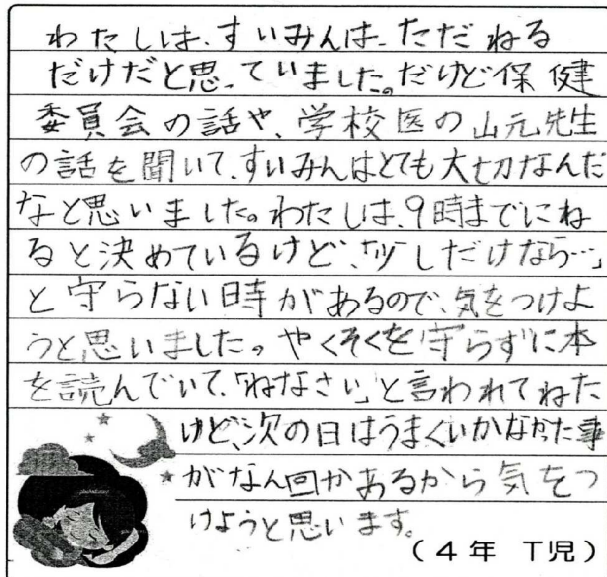 わたしは、すいみんは、ただねる
だけだと思っていました。だけど保健
委員会の話や、学校医の山元先生
の話を聞いて、すいみんはとても大切なんだ
なと思いました。わたしは、9時までにね
ると決めているけど、「少しだけなら…」
と守らない時があるので、気をつけよ
うと思いました。やくそくを守らずに本
を読んでいて、「ねなさい」と言われてねた
けど、次の日はうまくいかなかった事
がなん回かあるから気をつ
けようと思います。
(4年 T児)